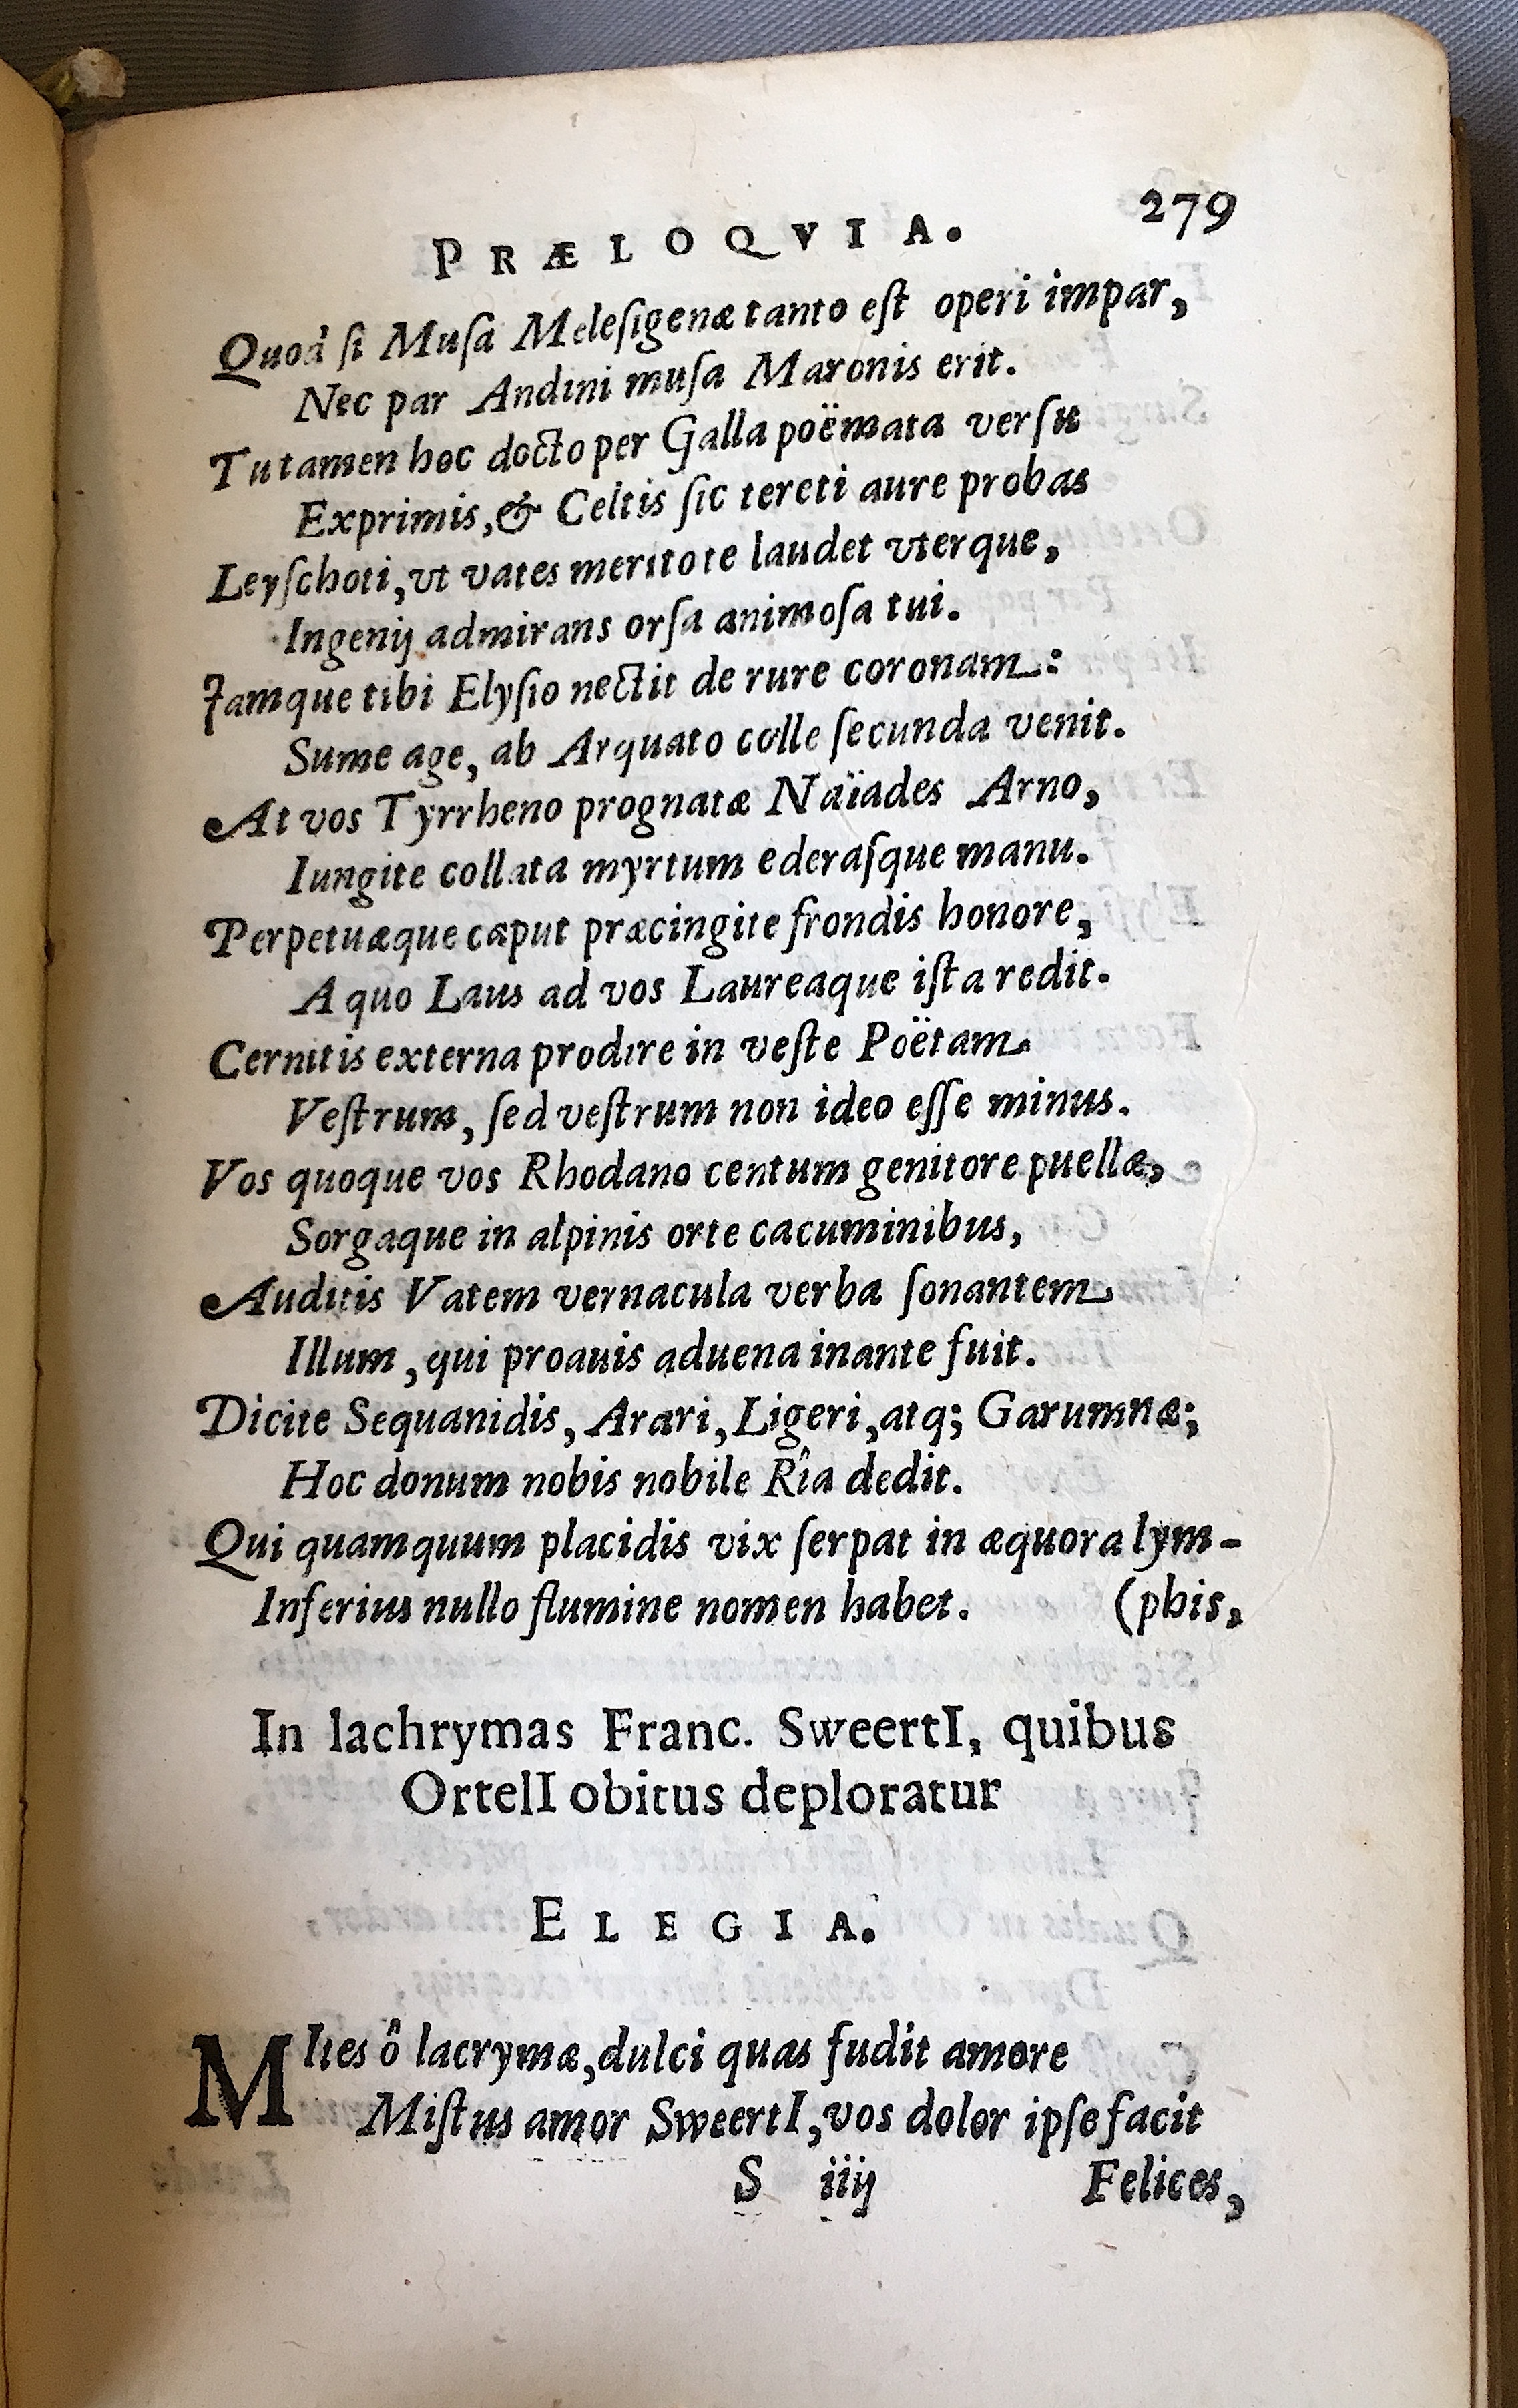 PRÆLOQVIA. 279
Quod ſi Muſa Meleſigenæ tanto eſt operi impar,
Nec par Andini muſa Maronis erit.
Tu tamen hoc docto per Galla poëmata verſu
Exprimis, & Celtis ſic tereti aure probas
Leyſchoti, vt vates merito te laudet vterque,
Ingenij admirans orſa animoſa tui.
Iamque tibi Elyſio nectit de rure coronam:
Sume age, ab Arquato colle ſecunda venit.
At vos Tyrrheno prognatæ Naïades Arno,
Iungite collata myrtum ederaſque manu.
Perpetuæque caput præcingite frondis honore,
A quo Laus ad vos Laureaque iſta redit.
Cernitis externa prodire in veſte Poëtam
Veſtrum, ſed veſtrum non ideo eſſe minus.
Vos quoque vos Rhodano centum genitore puellæ,
Sorgaque in alpinis orte cacuminibus,
Auditis Vatem vernacula verba ſonantem
Illum, qui proauis aduena inante fuit.
Dicite Sequanidis, Arari, Ligeri, atq; Garumnæ;
Hoc donum nobis nobile Rîa dedit.
Qui quamquum placidis vix ſerpat in æquora lym-
Inferius nullo flumine nomen habet. (phis,
In lachrymas Franc. SweertI, quibus
OrtelI obitus deploratur
ELEGIA.
MItes ô lacrymæ, dulci quas fudit amore
Miſtus amor SweertI, vos dolor ipſe facit
S iiij Felices,